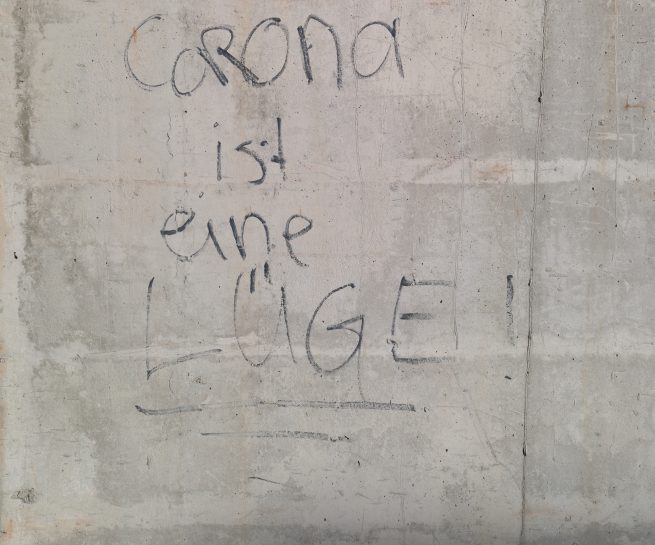 CORONA
ist
eine
LÜGE!